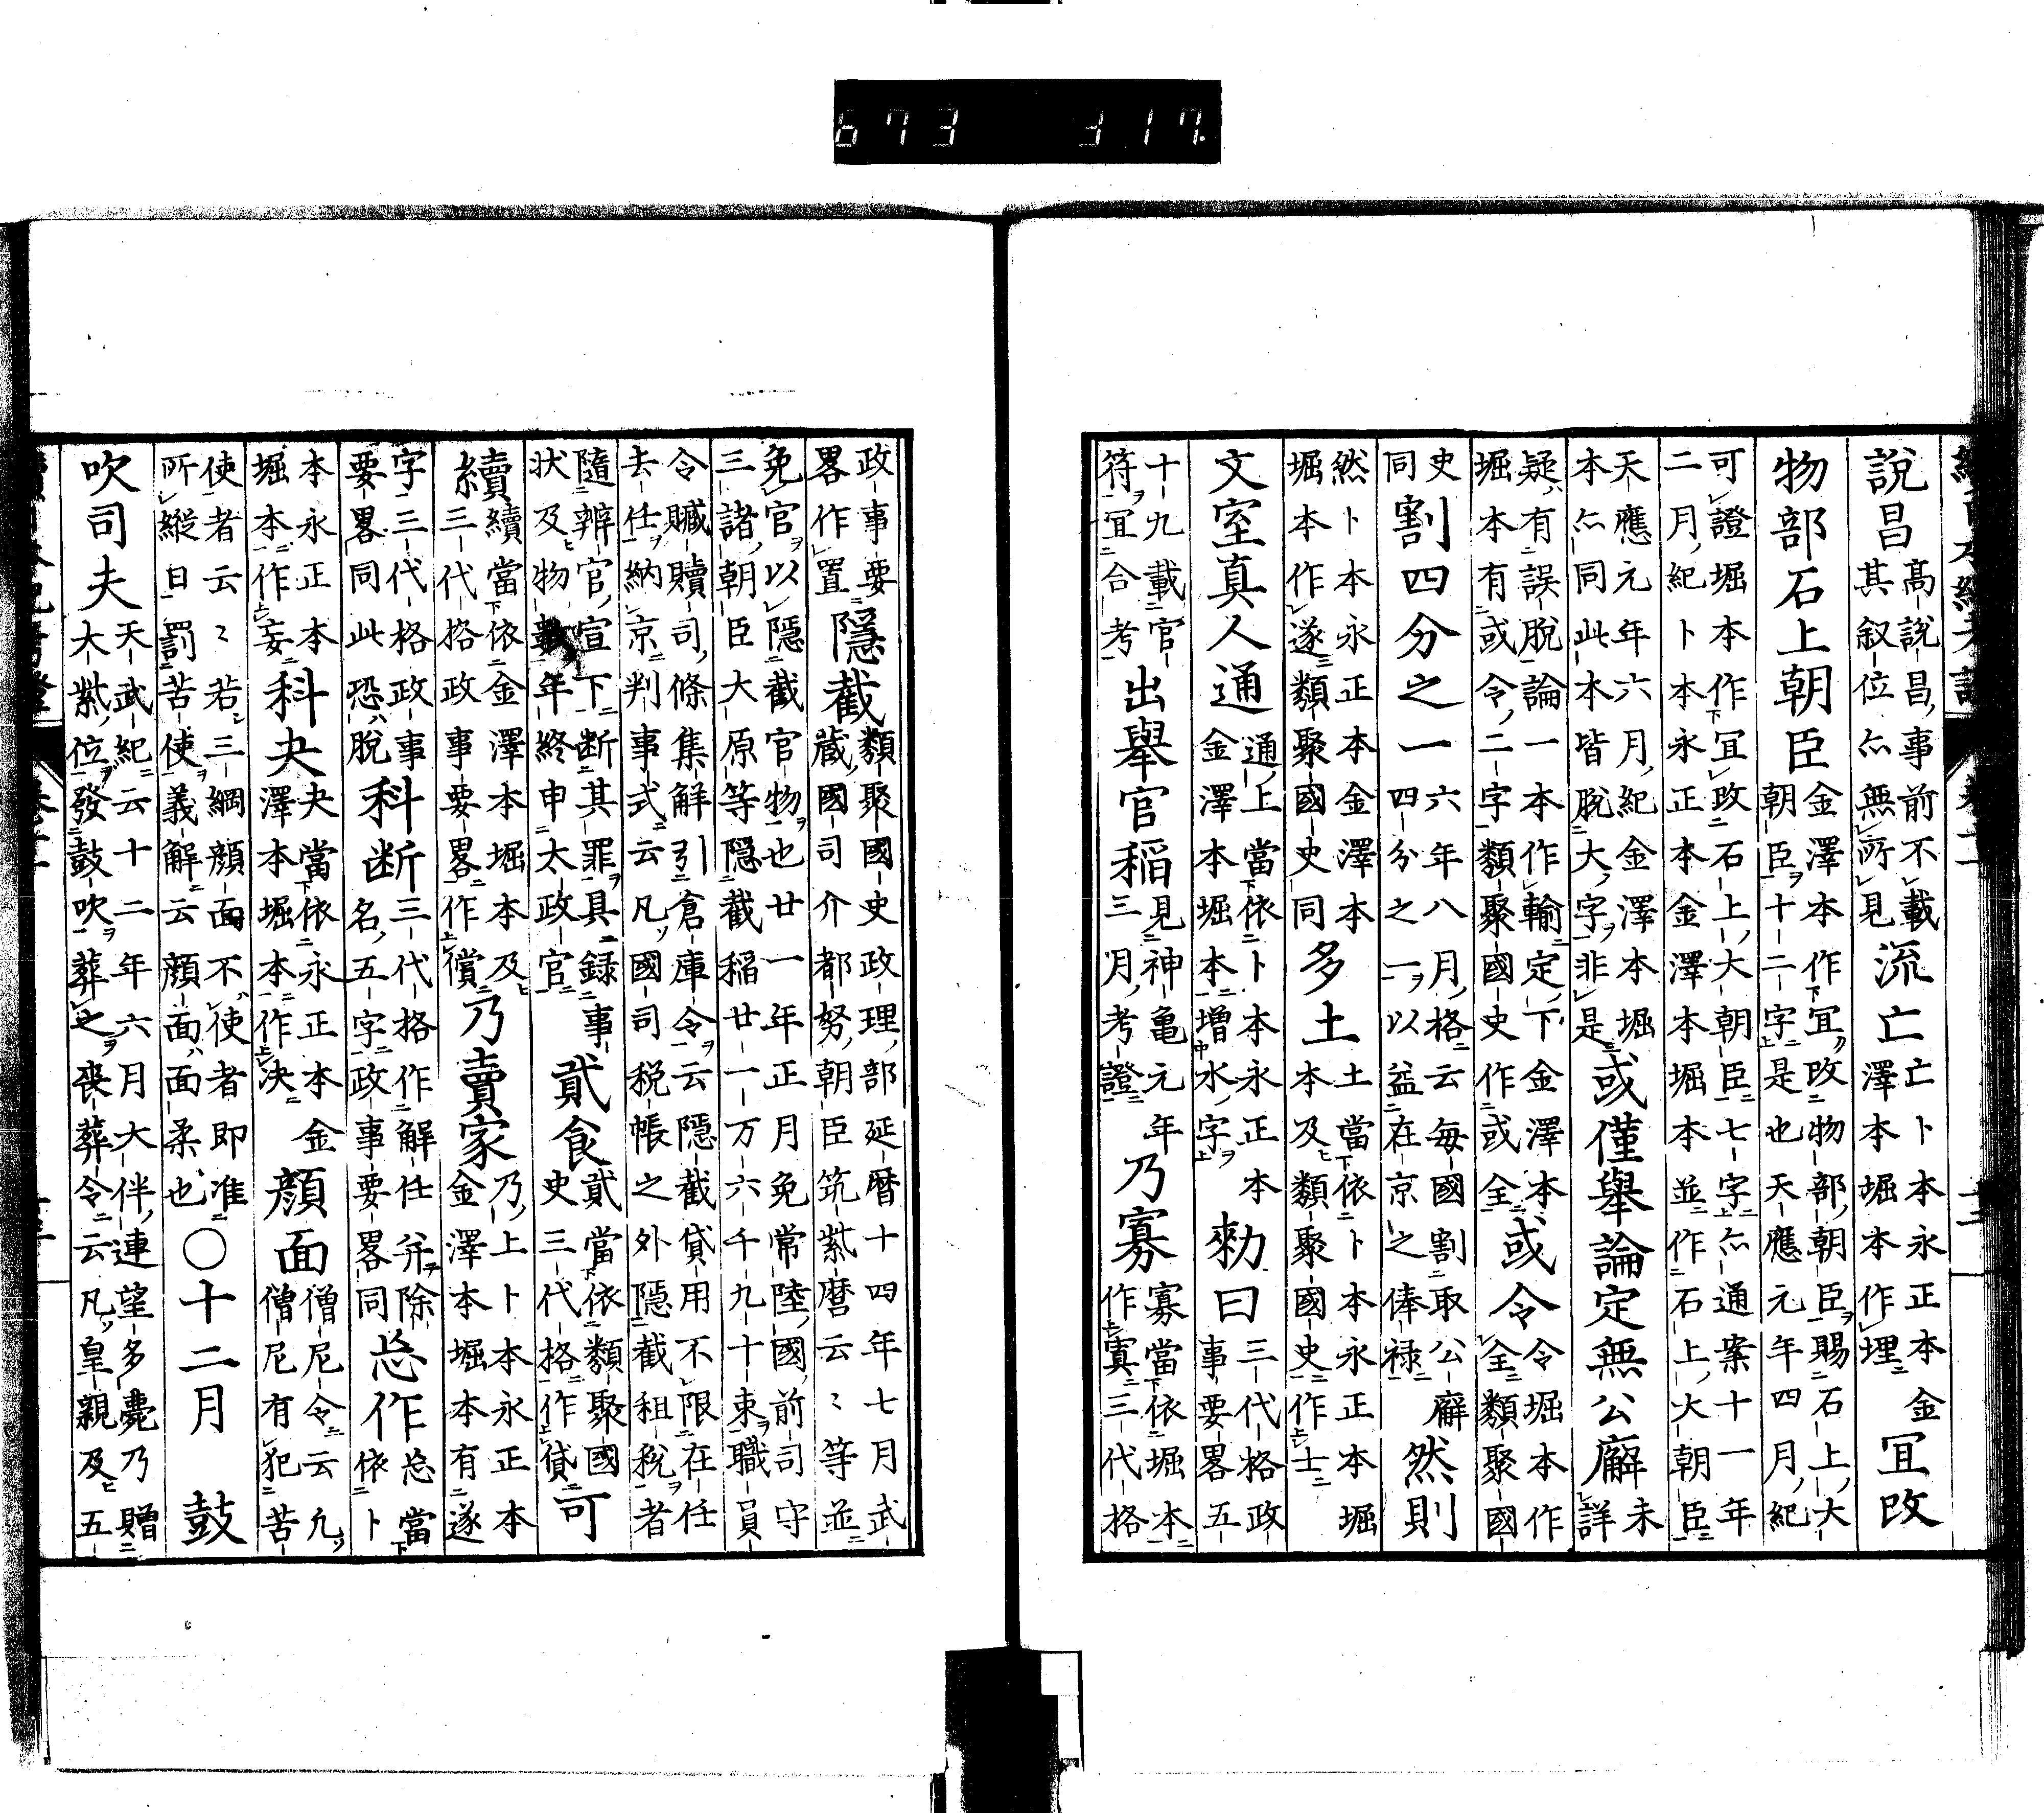 673 317
說昌高說昌事前不載其叙位亦無所見流亡亡卜本永正本金澤本堀本作埋宜改
物部石上朝臣金澤本作宜改物部朝臣賜石上大朝臣十二字是也天應元年四月紀
可證堀本作宜政石上大朝臣七字亦通案十一年二月紀卜本永正本金澤本堀本並作石上大朝臣
天應元年六月紀金澤本堀本亦同此本皆脫大字非是或僅舉論定無公廨未詳
疑有誤脫論一本作輸定下金澤本堀本有或令二字類聚國史作或全或令令堀本作全類聚國
史同割四分之一六年八月格云每國割取公廨四分之一以益在京之俸祿然則
然卜本永正本金澤本堀本作遂類聚國史同多土土當依卜本永正本堀本及類聚國史作士
文室真人通通上當依卜本永正本金澤本堀本增水字勅曰三代格政事要畧五
十九載官符宜合考出舉官稻見神亀元年三月考證乃寡寡當依堀本作寘三代格
政事要畧作置隱截類聚國史政理部延曆十四年七月武藏國司介都努朝臣筑紫麿云〻等並
免官以隱截官物也廿一年正月免常陸國前司守三諸朝臣大原等隱截稻廿一万六千九十束職員
令贓贖司條集解引倉庫令云隱截貸用不限在任去任納京判事式云凡國司税帳之外隱截租税者
隨辨官宣下断其罪具録事狀及物數年終申太政官貳食貳當依類聚國史三代格作貸可
續續當依金澤本堀本及三代格政事要畧作償乃賣家乃上卜本永正本金澤本堀本有遂
字三代格政事要畧同此恐脫科断三代格作解任并除名五字政事要畧同忩作忩當依卜
本永正本堀本作妄科夬夬當依永正本金澤本堀本作決顔面僧尼令云凢僧尼有犯苦
使者云〻若三綱顔面不使者即准所縱日罰苦使義解云顔面面柔也〇十二月 鼓
吹司夫天武紀云十二年六月大伴連望多薨乃贈大紫位發鼓吹葬之喪葬令云凡皇親及五